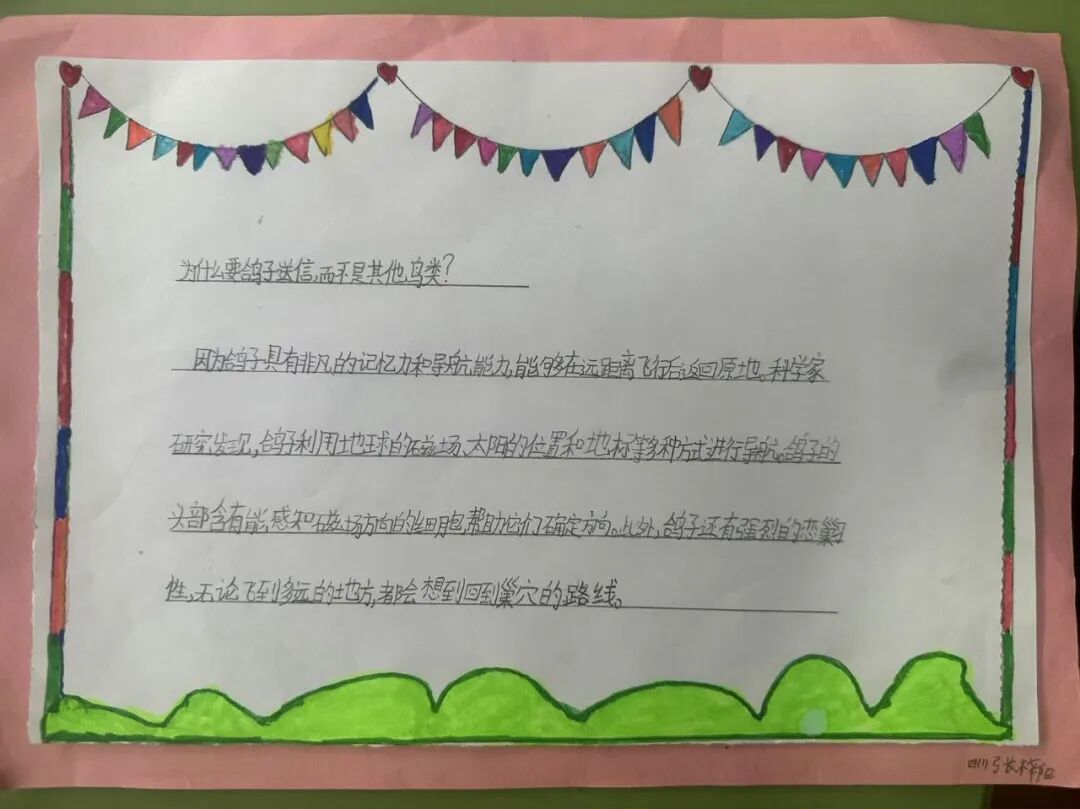 为什么要鸽子送信,而不是其他鸟类?
因为鸽子具有非凡的记忆力和导航能力,能够在远距离飞行后返回原地。科学家
研究发现,鸽子利用地球的磁场、太阳的位置和地标等多种方式进行导航。鸽子的
头部含有能感知磁场方向的细胞,帮助它们确定方向。此外,鸽子还有强烈的恋巢
性,无论飞到多远的地方,都会想到回到巢穴的路线。